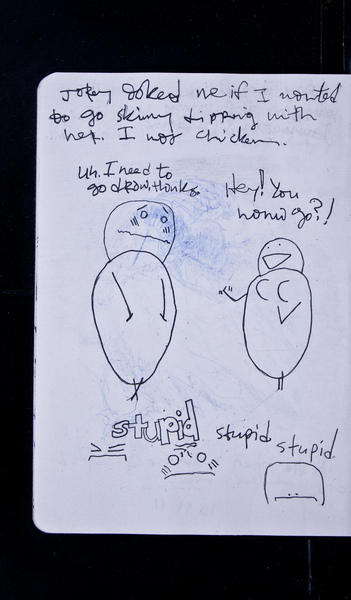 asked me if I wanted
to go skinny dipping with
her. I was chicken.
uh. I need to
go draw, thanks.
Hey! You
wanna go?!
stupid stupid stupid